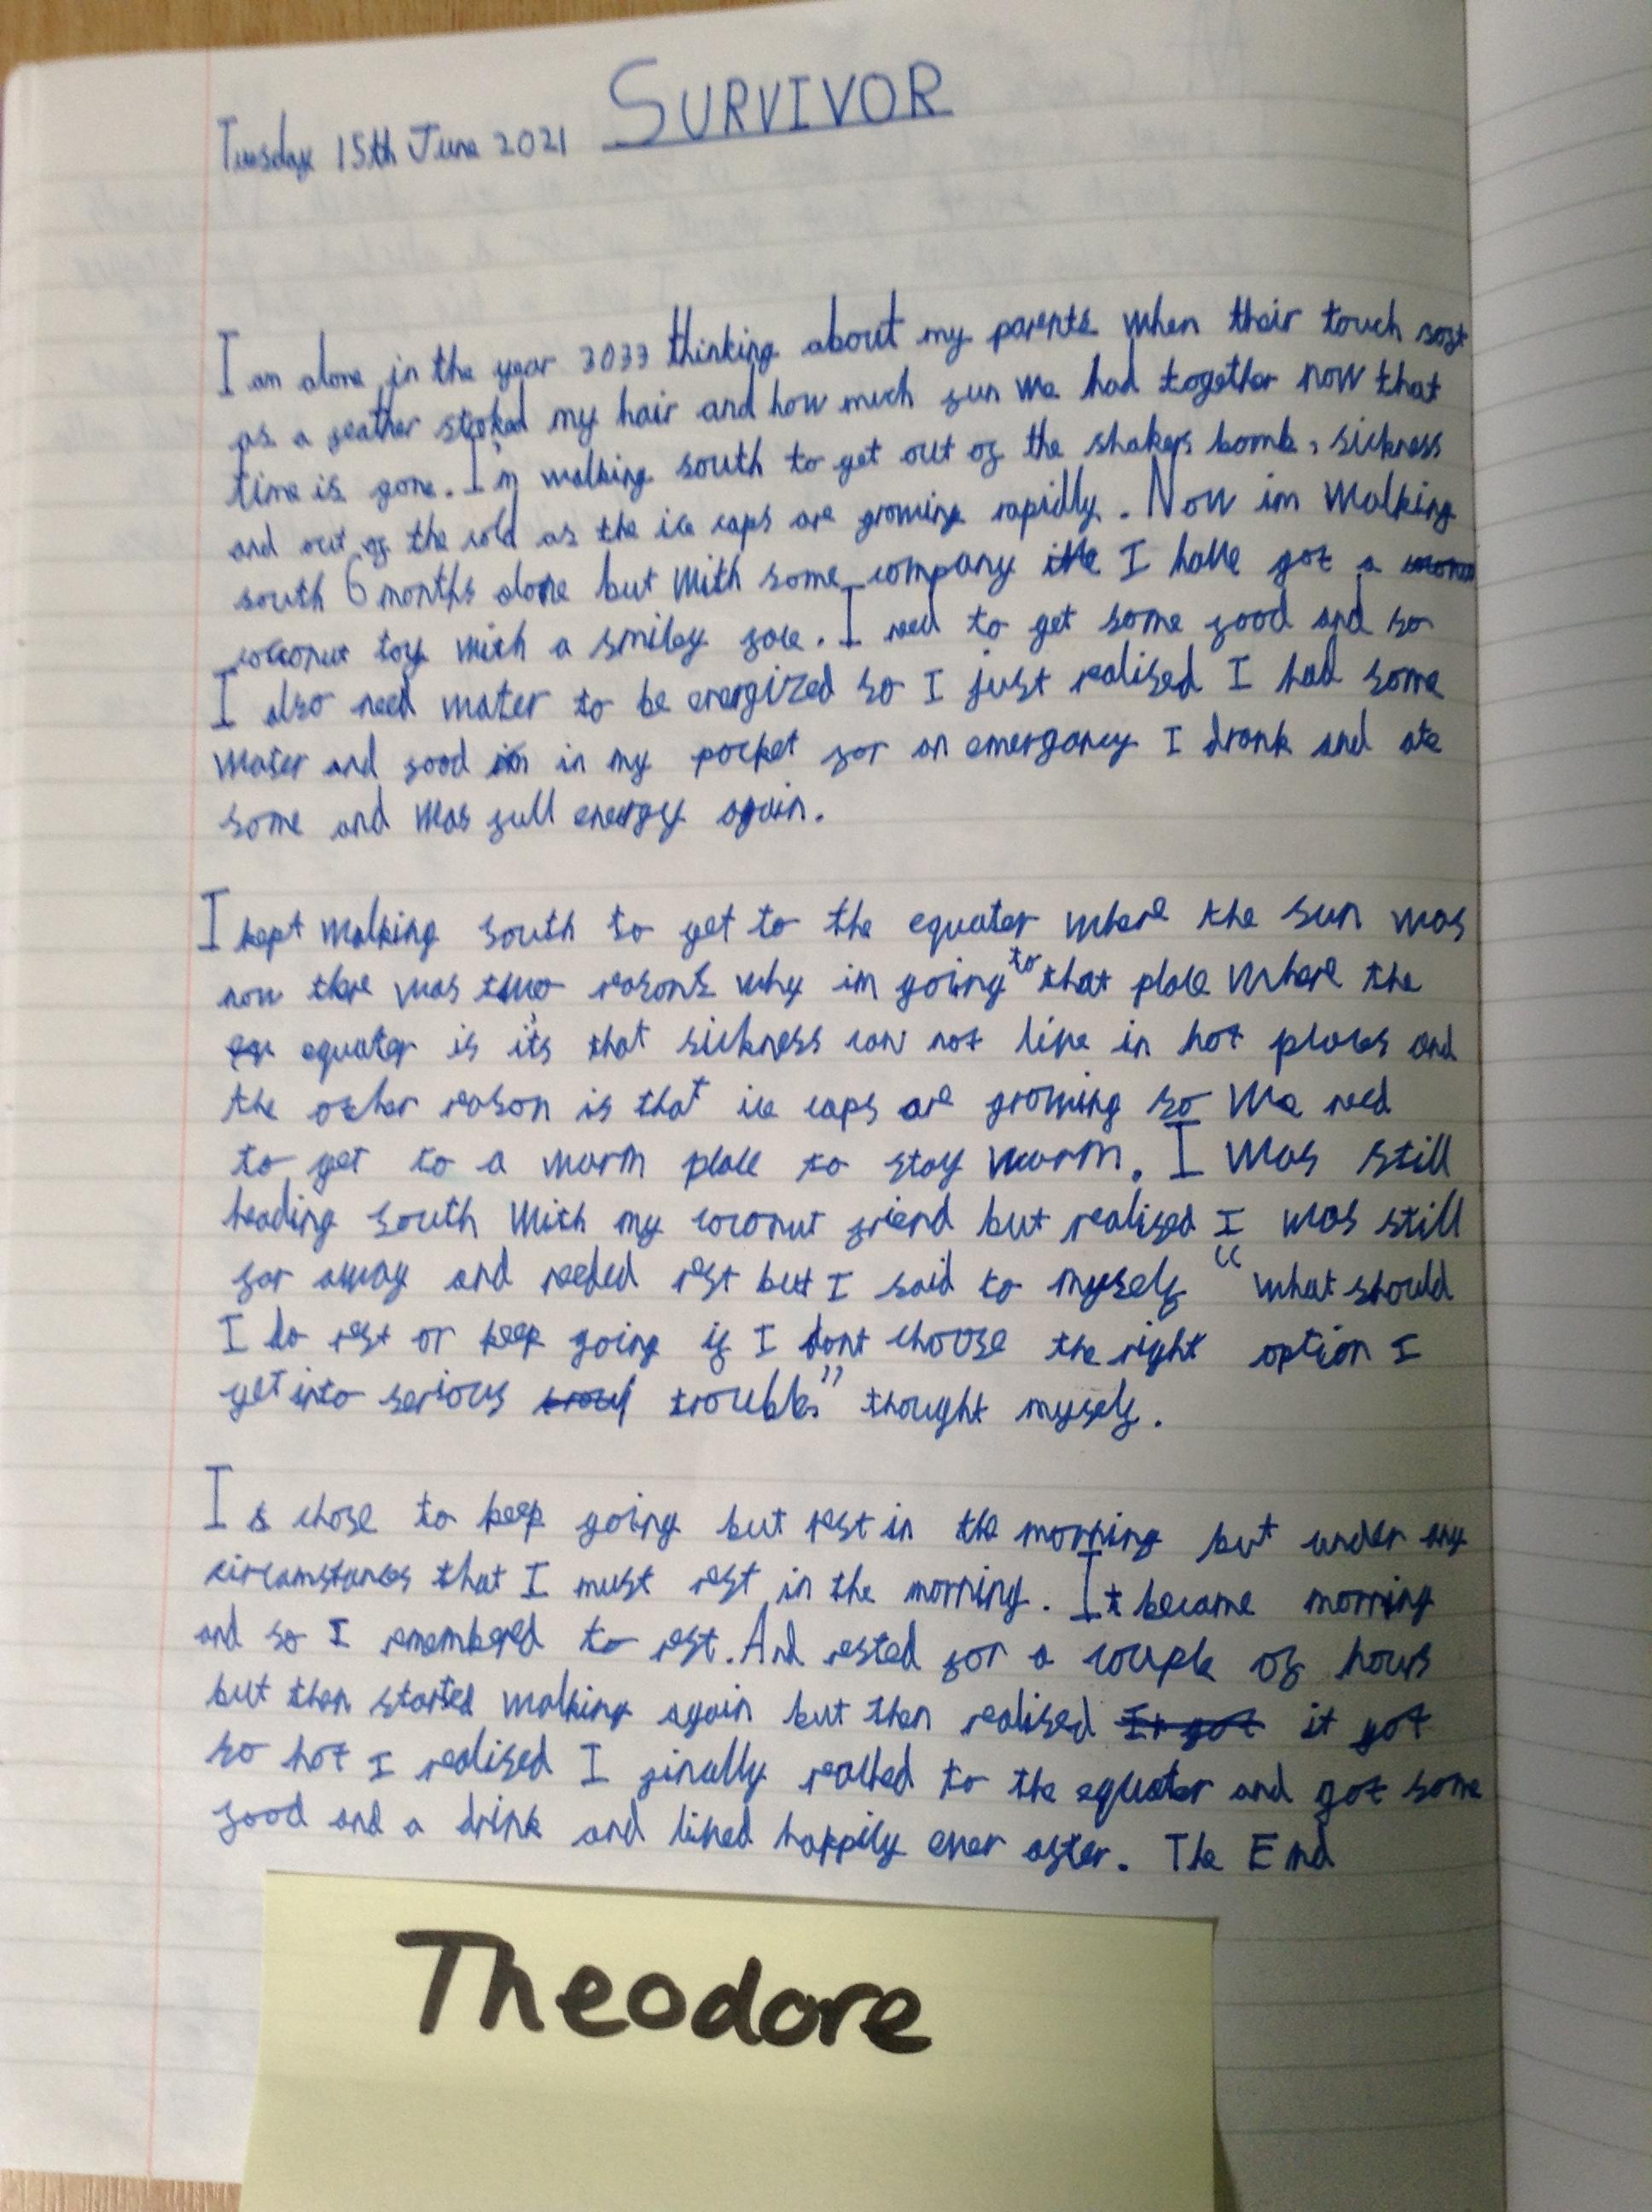 SURVIVOR
Tuesday 15th June 2021
I am alone in the year 3033 thinking about my parents when their touch soft
as a feather stroked my hair and how much fun we had together now that
time is gone. I'm walking south to get out of the shakers bomb, sickness
and out of the cold as the ice caps are growing rapidly. Now im walking
south 6 months alone but with some company I have got a
coconut toy with a smiley face. I need to get some food and so
I also need water to be energized so I just realised I had some
water and food in my pocket for an emergancy I drank and ate
some and was full energy again.
I kept walking south to get to the equater where the sun was
now there was two reasons why im going to that place where the
equater is it's that sickness can not live in hot places and
the other reason is that ice caps are growing so we need
to get to a warm place to stay warm. I was still
heading south with my coconut friend but realised I was still
far away and needed rest but I said to myself “what should
I do rest or keep going if I dont choose the right option I
get into serious trouble.” thought myself.
I chose to keep going but rest in the morning but under any
circamstances that I must rest in the morning. It became morning
and so I remembered to rest. And rested for a couple of hours
but then started walking again but then realised it got
so hot I realised I finally reached to the equater and got some
food and a drink and lived happily ever after. The End
Theodore